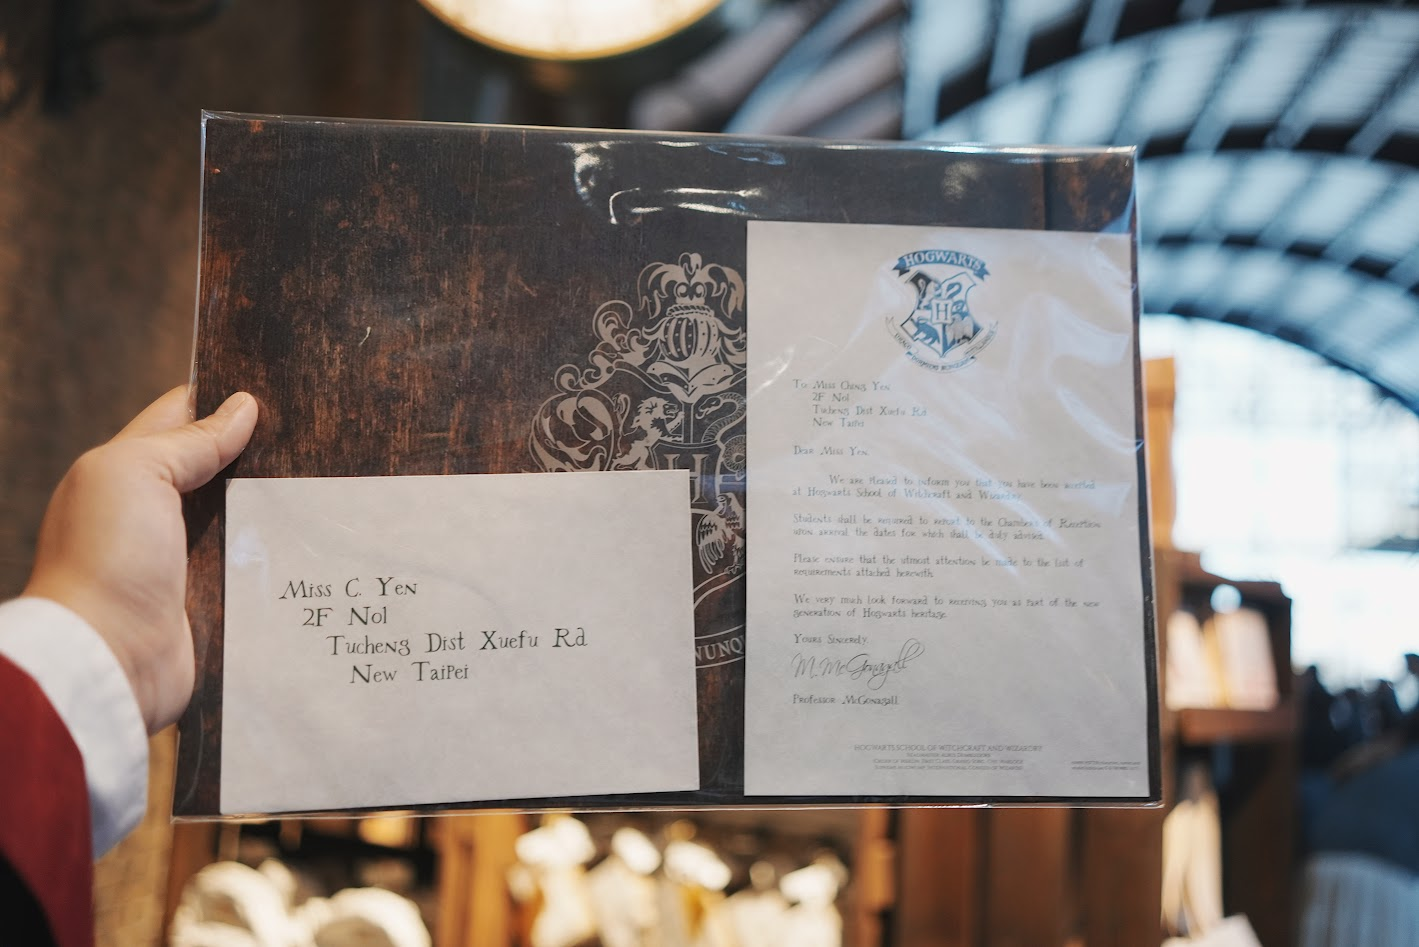 Miss C. Yen
2F No1
Tucheng Dist Xuefu Rd
New Taipei
NUNQ
H
HOGWARTS
H
To Miss Ching Yen
2F No1
Tucheng Dist Xuefu Rd
New Taipei
Dear Miss Yen,
We are pleased to inform you that you have been accepted
at Hogwarts School of Witchcraft and Wizardry.
Students shall be required to report to the Chamber of Reception
upon arrival, the dates for which shall be duly advised.
Please ensure that the utmost attention be made to the list of
requirements attached herewith.
We very much look forward to receiving you as part of the new
generation of Hogwarts heritage.
Yours Sincerely,
M. McGonagall
Professor McGonagall
HOGWARTS SCHOOL OF WITCHCRAFT AND WIZARDRY